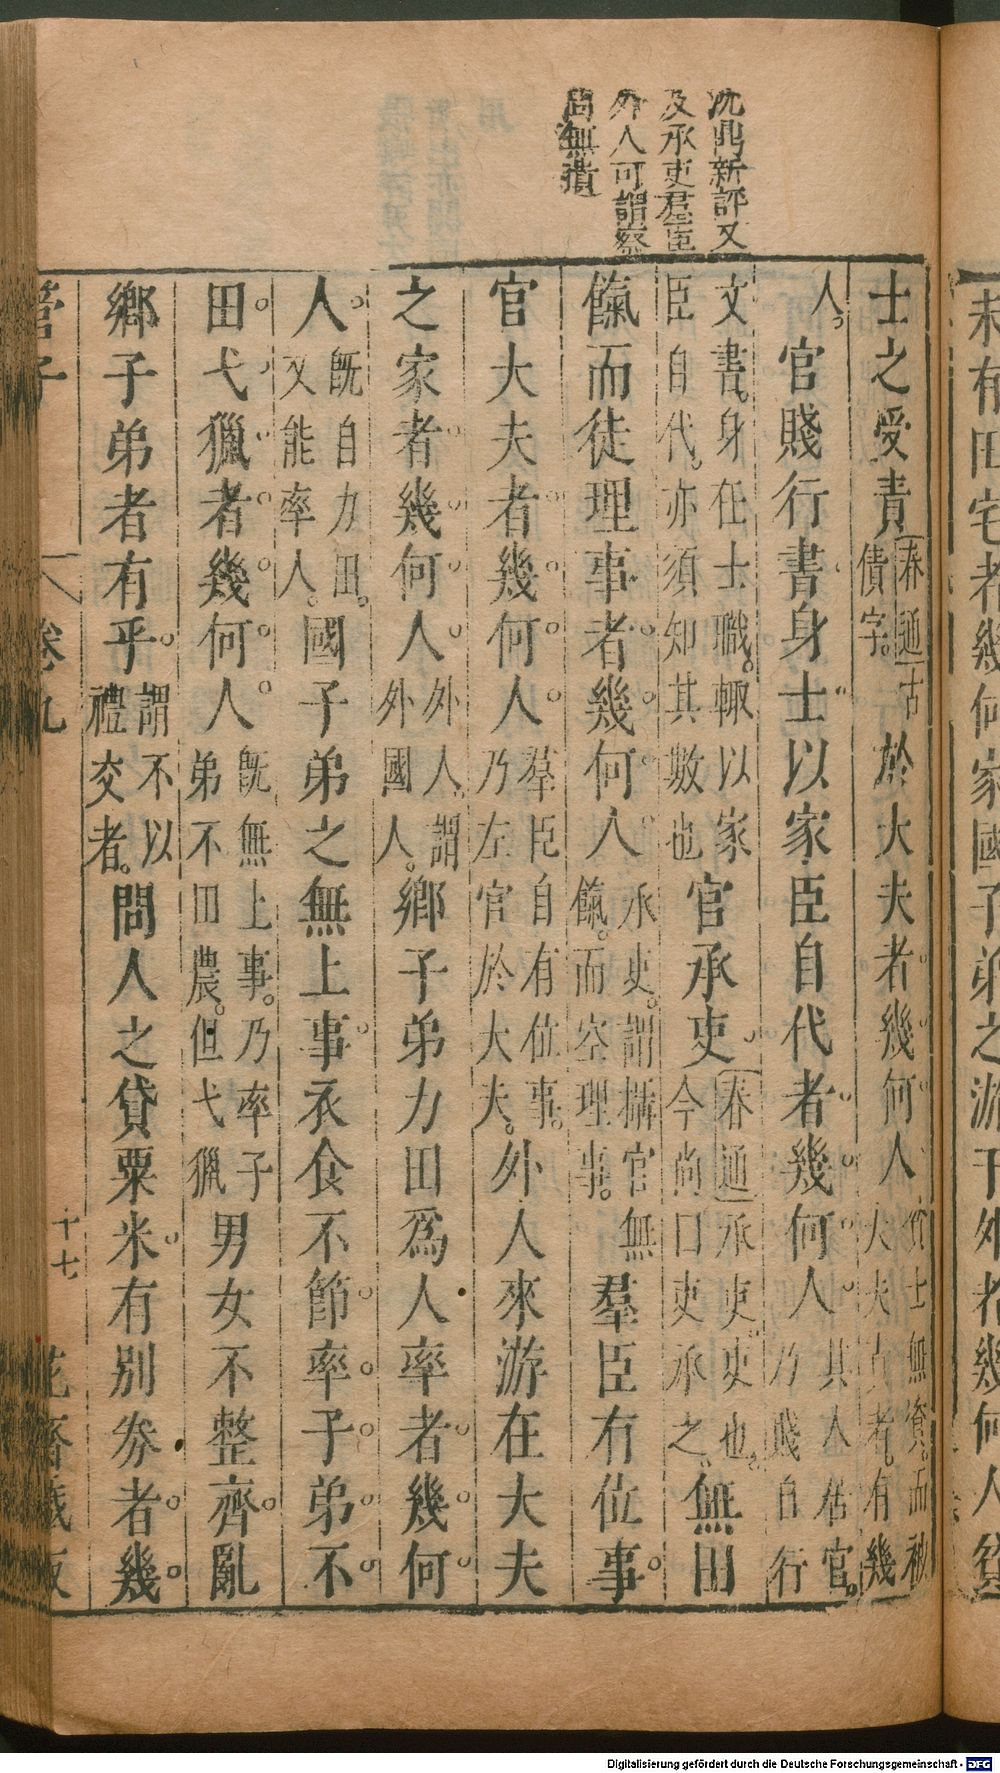 沈鼎新評又
及承吏羣臣
外人可謂察
問無遺
士之受責春通古債字。於大夫者幾何人貧士無資。而被大夫責者。有幾
人。官賤行書身士以家臣自代者幾何人其人居官。乃賤自行
文書。身任士職。輒以家臣自代。亦須知其數也官承吏春通承吏。吏也。今尚口吏承之。無田
餼而徒理事者幾何人承吏。謂攝官無餼。而空理事。羣臣有位事
官大夫者幾何人羣臣自有位事。乃左官於大夫。外人來游在大夫
之家者幾何人外人。謂外國人。鄉子弟力田為人率者幾何
人。既自力田。又能率人。國子弟之無上事衣食不節率子弟不
田弋獵者幾何人既無上事。乃率子弟不田農。但弋獵男女不整齊亂
鄉子弟者有乎謂不以禮交者。問人之貸粟米有別券者幾
管子
卷九
十七
花齋藏板
未有田宅者幾何家國子弟之游于外者幾何人貧
Digitalisierung gefördert durch die Deutsche Forschungsgemeinschaft - DFG